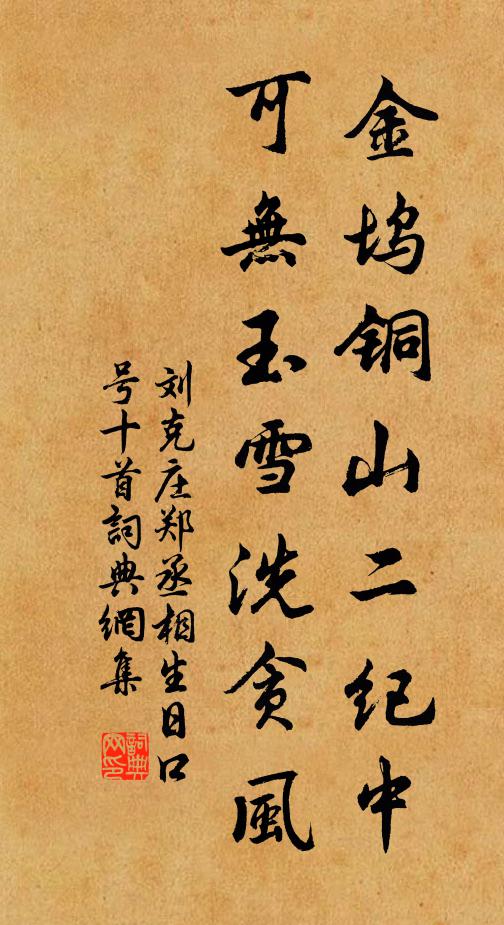 金坞铜山二纪中
可無玉雪洗贪風
刘克庄郑丞相生日口
号十首詞典網集
詞典
网印